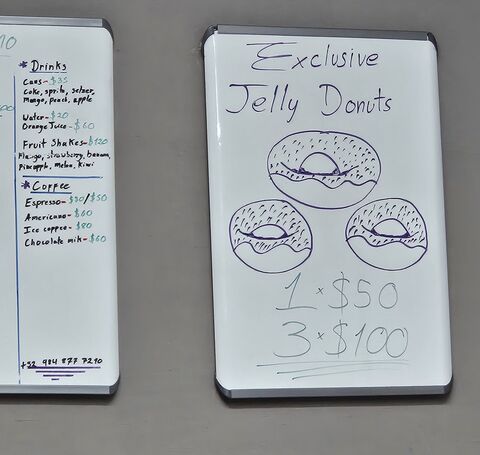 10
* Drinks
Cans-$35
Coke, sprite, selzer,
Mango, peach, apple
Water-$20
Orange Juice-$60
Fruit Shakes-$120
Mango, strawberry, banana,
Pineapple, melon, kiwi
* Coffee
Espresso-$30/$50
Americano-$60
Ice coppee-$80
Chocolate milk-$60
+52 984 877 7210
Exclusive
Jelly Donuts
1 × $50
3 × $100